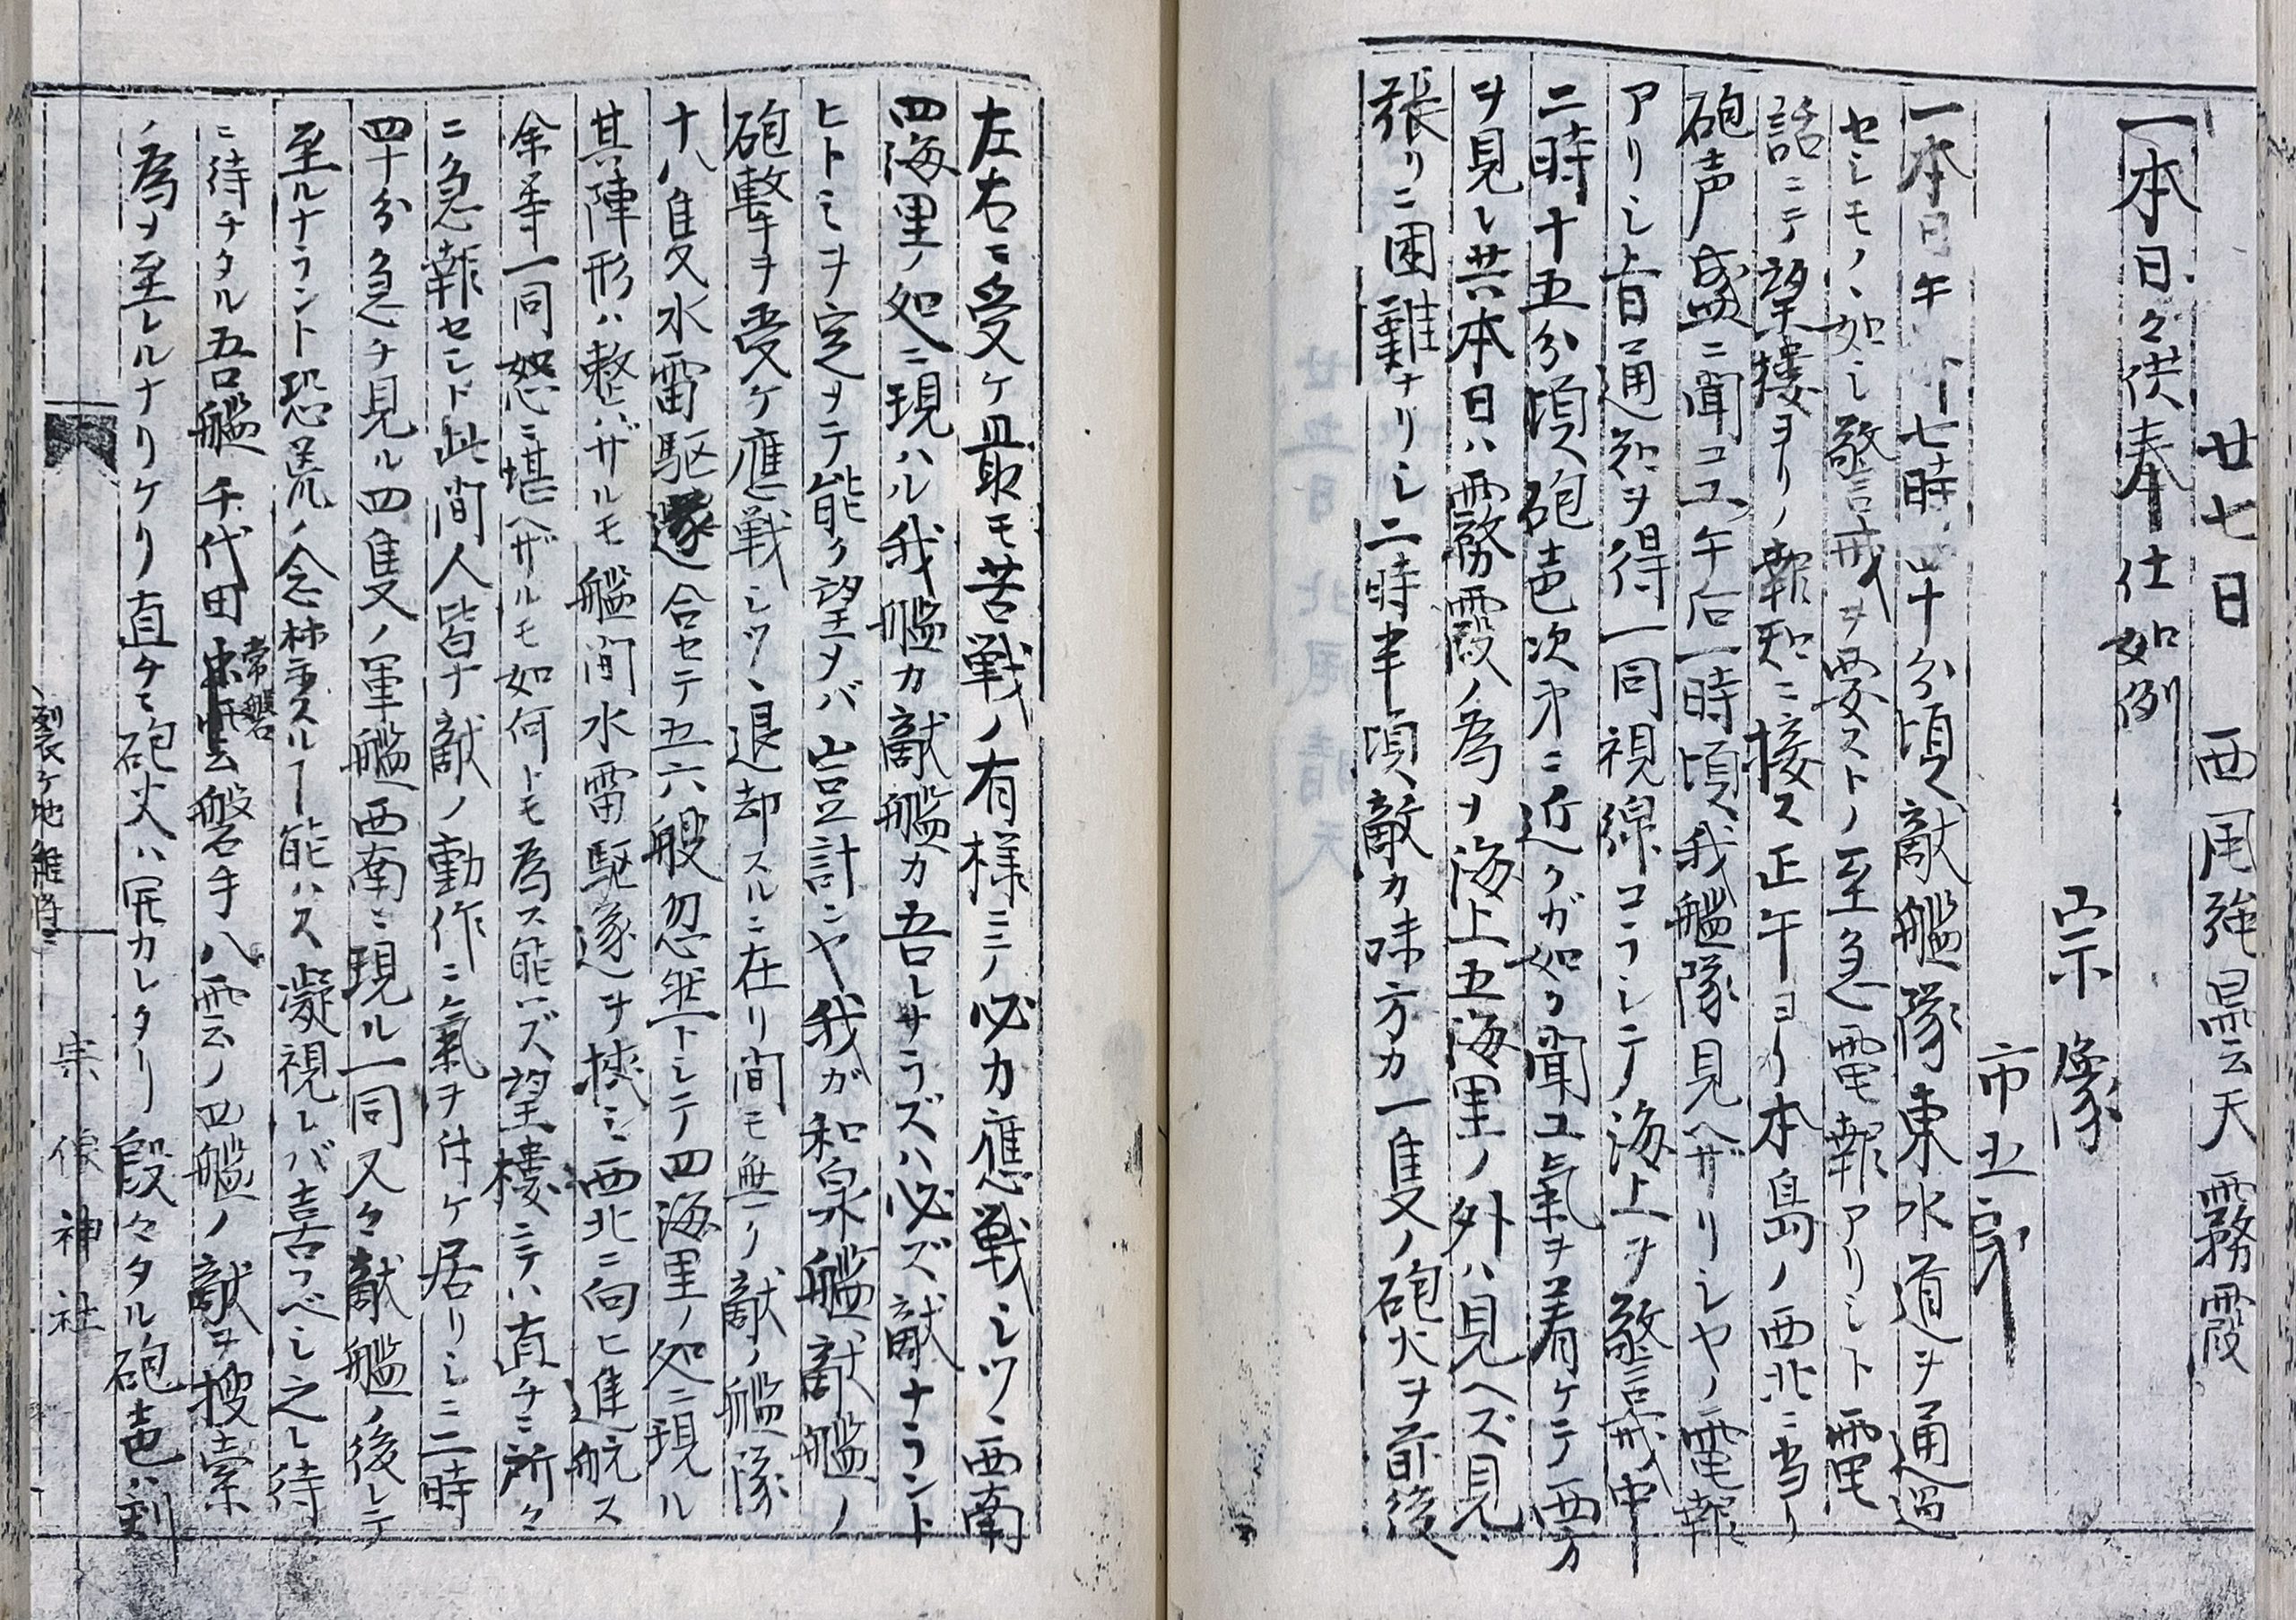 廿七日 西風強曇天霧霞
一本日々供奉仕如例
宗像
市五郎
一本日午 七時四十分頃敵艦隊東水道ヲ通過
セシモノヽ如シ警戒ヲ要ストノ至急電報アリシト電
話ニテ望樓ヨリノ報知ニ接ス正午ヨリ本島ノ西北ニ当リ
砲声盛ニ聞コユ午后一時頃我艦隊見ヘザリシヤノ電報
アリシ旨通知ヲ得一同視線コラシテ海上ヲ警戒中
二時十五分頃砲声次第ニ近クガ如ク聞ユ氣ヲ着ケテ西方
ヲ見レ共本日ハ霧霞ノ為メ海上五海里ノ外ハ見ヘズ見
張リニ困難ナリシ二時半頃敵カ味方カ一隻ノ砲火ヲ前後
左右ニ受ケ最モ苦戦ノ有様ニテ必カ應戦シツヽ西南
四海里ノ処ニ現ハル我艦カ敵艦カ吾レサラズハ必ズ敵ナラント
ヒトミヲ定メテ能ク望メバ豈計ンヤ我ガ和泉艦敵艦ノ
砲撃ヲ受ケ應戦シツヽ退却スルニ在リ間モ無ク敵ノ艦隊
十八隻又水雷駆逐合セテ五六艘忽然トシテ四海里ノ処ニ現ル
其陣形ハ整ハザルモ艦間水雷駆逐ヲ挾ミ西北ニ向ヒ進航ス
余等一同怒ニ堪ヘザルモ如何トモ為ス能ハズ望樓ニテハ直チニ所々
ニ急報セシト此間人皆ナ敵ノ動作ニ氣ヲ付ケ居リシニ二時
四十分急チ見ル四隻ノ軍艦西南ニ現ル一同又々敵艦ノ後レテ
至ルナラント恐慌ノ念禁スルコト能ハス凝視レバ喜フベシ之レ待
ニ待チタル吾艦千代田常磐磐手八雲ノ四艦ノ敵ヲ捜索
ノ為メ至レルナリケリ直チニ砲火ハ開カレタリ殷々タル砲声ハ刻
宗像神社